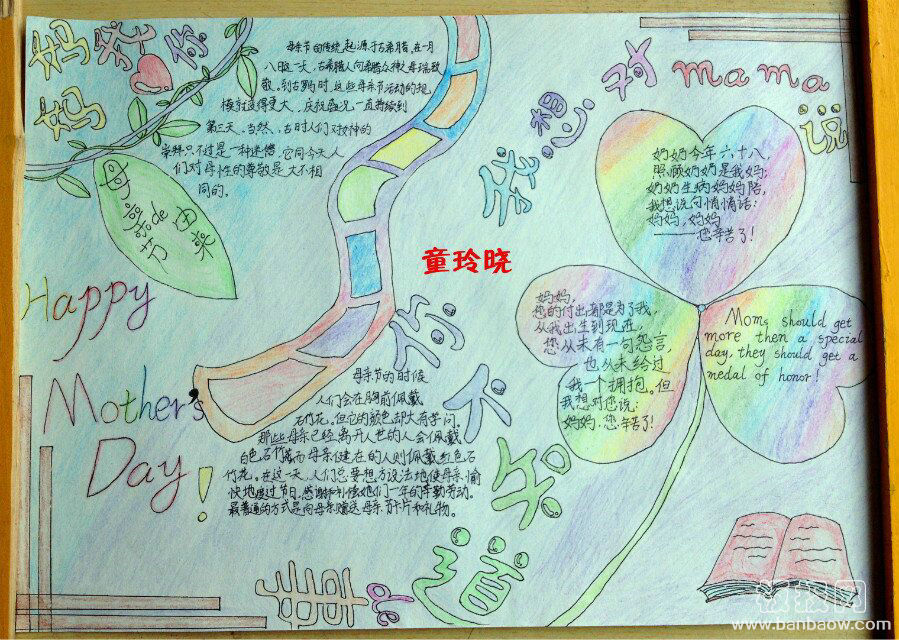 妈妈我爱你
母亲节的传统起源于古希腊。在一月
八日这一天，古希腊人向希腊众神之母瑞致
敬。到古罗马时，这些母亲节活动的规
模就变得更大，庆祝盛况一直持续到
第三天。当然，古时人们对女神的
崇拜只不过是一种迷信，它同今天人
们对母性的尊敬是大不相
同的。
母亲节de由来
Happy
Mother's
Day!
我想对mama说
奶奶今年六十八，
照顾奶奶是我妈；
奶奶生病妈妈陪，
我想说句悄悄话：
妈妈，妈妈
——您辛苦了！
童玲晓
妈妈，
您的付出都是为了我，
从我出生到现近，
您从未有一句怨言，
也从未给过
我一个拥抱。但
我想对您说：
妈妈，您辛苦了！
Moms should get
more then a special
day, they should get a
medal of honor!
你不知道
de
母亲节的时候
人们会在胸前佩戴
石竹花。但它的颜色却大有学问。
那些母亲已经离开人世的人会佩戴
白色石竹花而母亲健在的人则佩戴红色石
竹花。在这一天，人们总要想方设法地使母亲愉
快地度过节日，感谢和补偿她们一年的辛勤劳动。
最普通的方式是向母亲赠送母亲节卡片和礼物。
板报网
www.banbaow.com